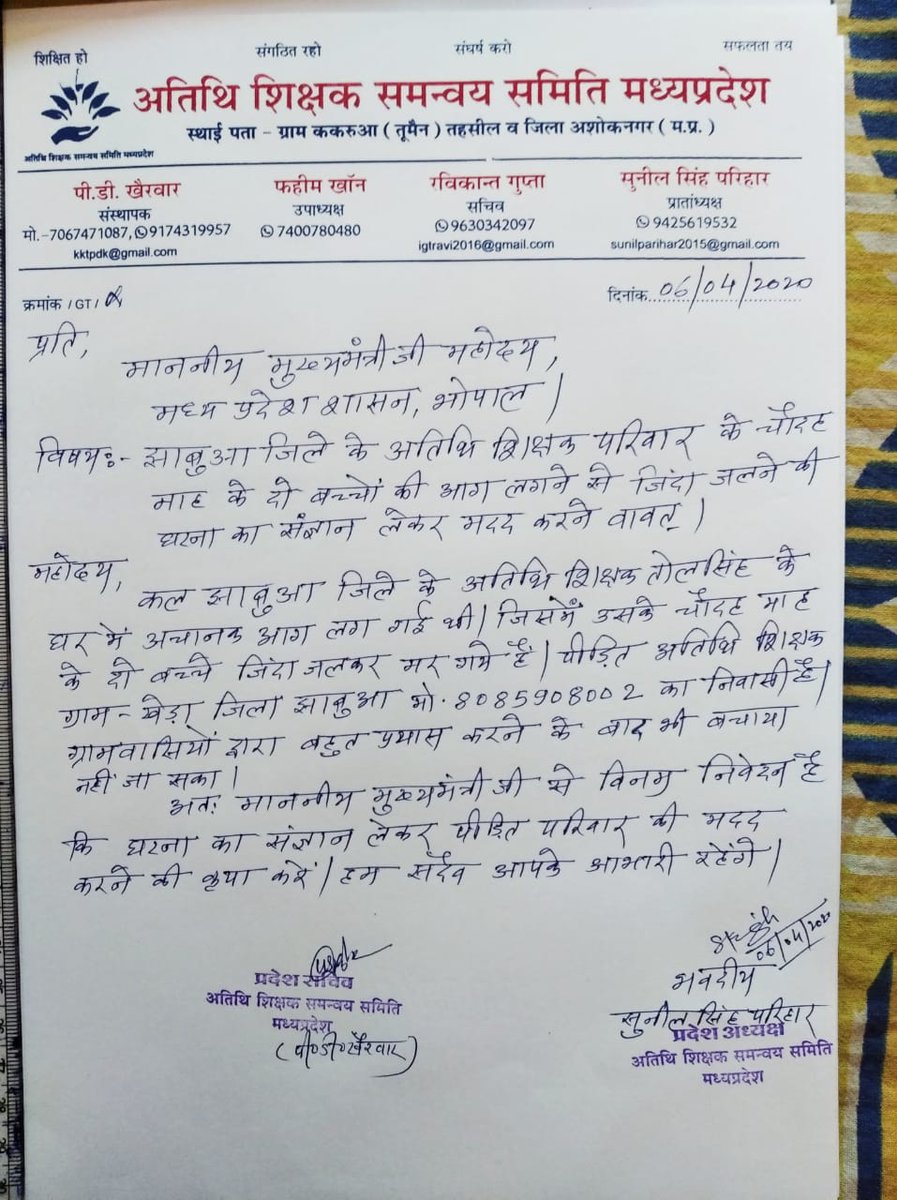 शिक्षित हो संगठित रहो संघर्ष करो सफलता तय
अतिथि शिक्षक समन्वय समिति मध्यप्रदेश
स्थाई पता - ग्राम ककरुआ ( तूमैन ) तहसील व जिला अशोकनगर ( म.प्र. )
अतिथि शिक्षक समन्वय समिति मध्यप्रदेश
पी.डी. खैरवार
संस्थापक
मो.-7067471087, 9174319957
kktpdk@gmail.com
फहीम खॉन
उपाध्यक्ष
7400780480
रविकान्त गुप्ता
सचिव
9630342097
igtravi2016@gmail.com
सुनील सिंह परिहार
प्रातांध्यक्ष
9425619532
sunilparihar2015@gmail.com
क्रमांक / GT /
दिनांक 06/04/2020
प्रति,
माननीय मुख्यमंत्री जी महोदय,
मध्य प्रदेश शासन, भोपाल |
विषयः- झाबुआ जिले के अतिथि शिक्षक परिवार के चौदह
माह के दो बच्चों की आग लगने से जिंदा जलने की
घटना का संज्ञान लेकर मदद करने वावत् |
महोदय,
कल झाबुआ जिले के अतिथि शिक्षक तोलसिंह के
घर में अचानक आग लग गई थी | जिसमें उसके चौदह माह
के दो बच्चे जिंदा जलकर मर गये है | पीड़ित अतिथि शिक्षक
ग्राम - खेड़ा जिला झाबुआ मो. 8085908002 का निवासी है |
ग्रामवासियों द्वारा बहुत प्रयास करने के बाद भी बचाया
नहीं जा सका |
अतः माननीय मुख्यमंत्री जी से विनम्र निवेदन है
कि घटना का संज्ञान लेकर पीड़ित परिवार की मदद
करने की कृपा करें | हम सदैव आपके आभारी रहेंगे |
06/04/2020
भवदीय
सुनील सिंह परिहार
प्रदेश अध्यक्ष
अतिथि शिक्षक समन्वय समिति
मध्यप्रदेश
प्रदेश सचिव
अतिथि शिक्षक समन्वय समिति
मध्यप्रदेश
(पी०डी०खैरवार)